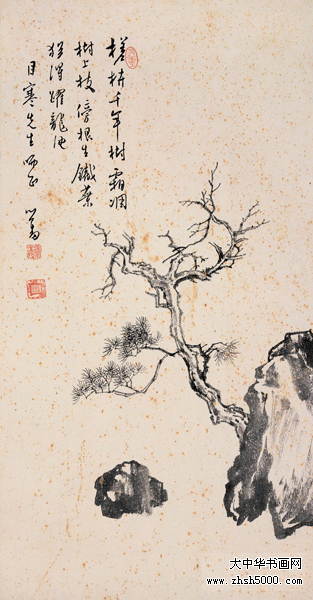 槎枒千年樹霜凋
樹上枝傍根生鐵葉
猶得躍龍池
目寒先生哂正
心畬
大中华书画网
www.zhsh5000.com